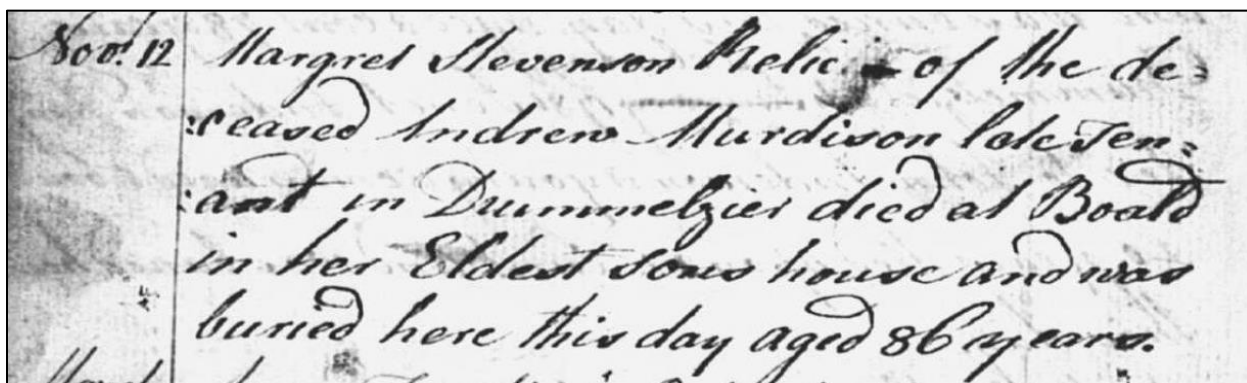 Novr. 12 Margret Stevenson Relic of the de=
=ceased Andrew Murdison late Ten=
=ant in Drummelzier died at Boald
in her Eldest sons house and was
buried here this day aged 86 years.